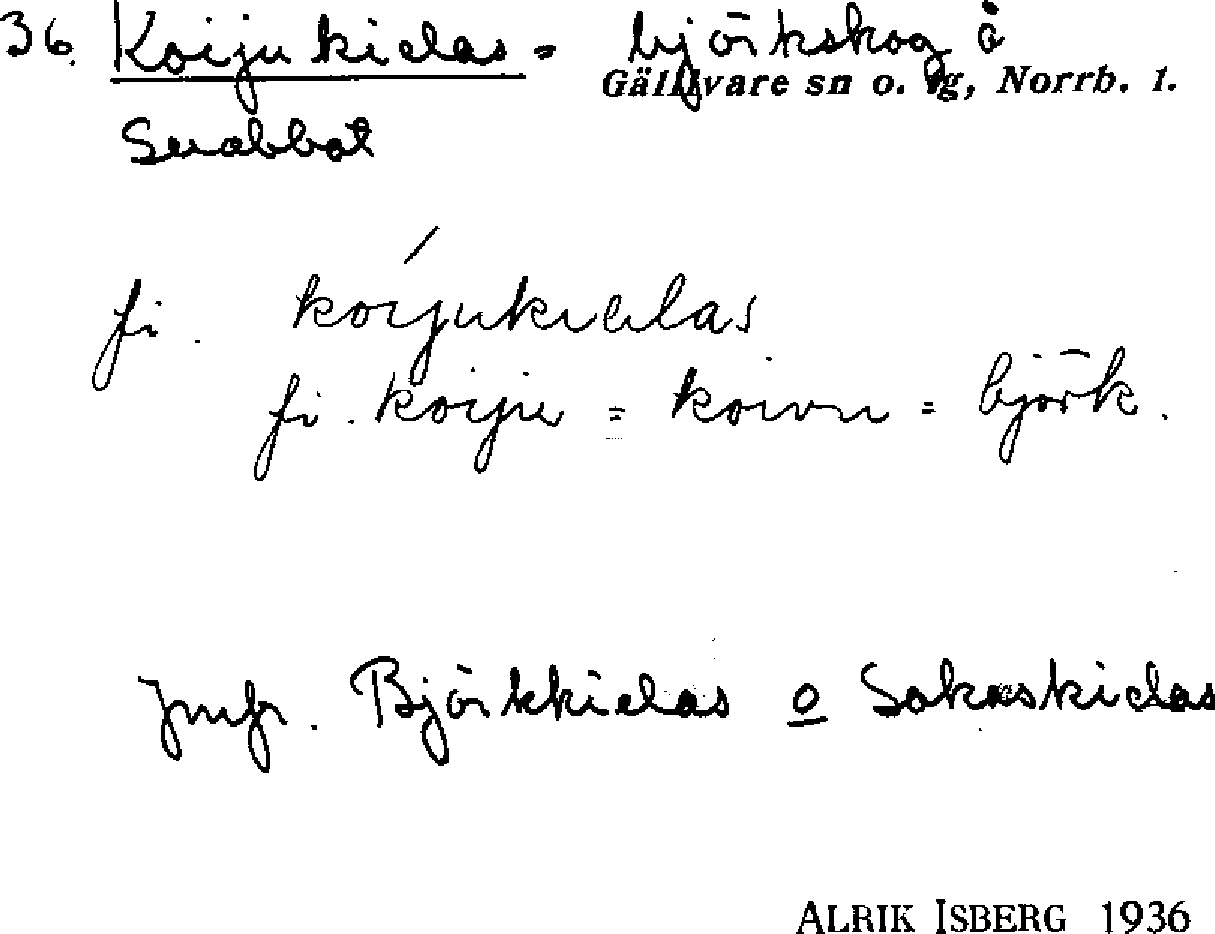 36. Koijukielas = björkskog å
Gällivare sn o. tg, Norrb. l.
Snabbat
fi. koijukielas
fi. koiju = koivu = björk.
Jmfr. Björkkielas o Sakaskielas
ALRIK ISBERG 1936